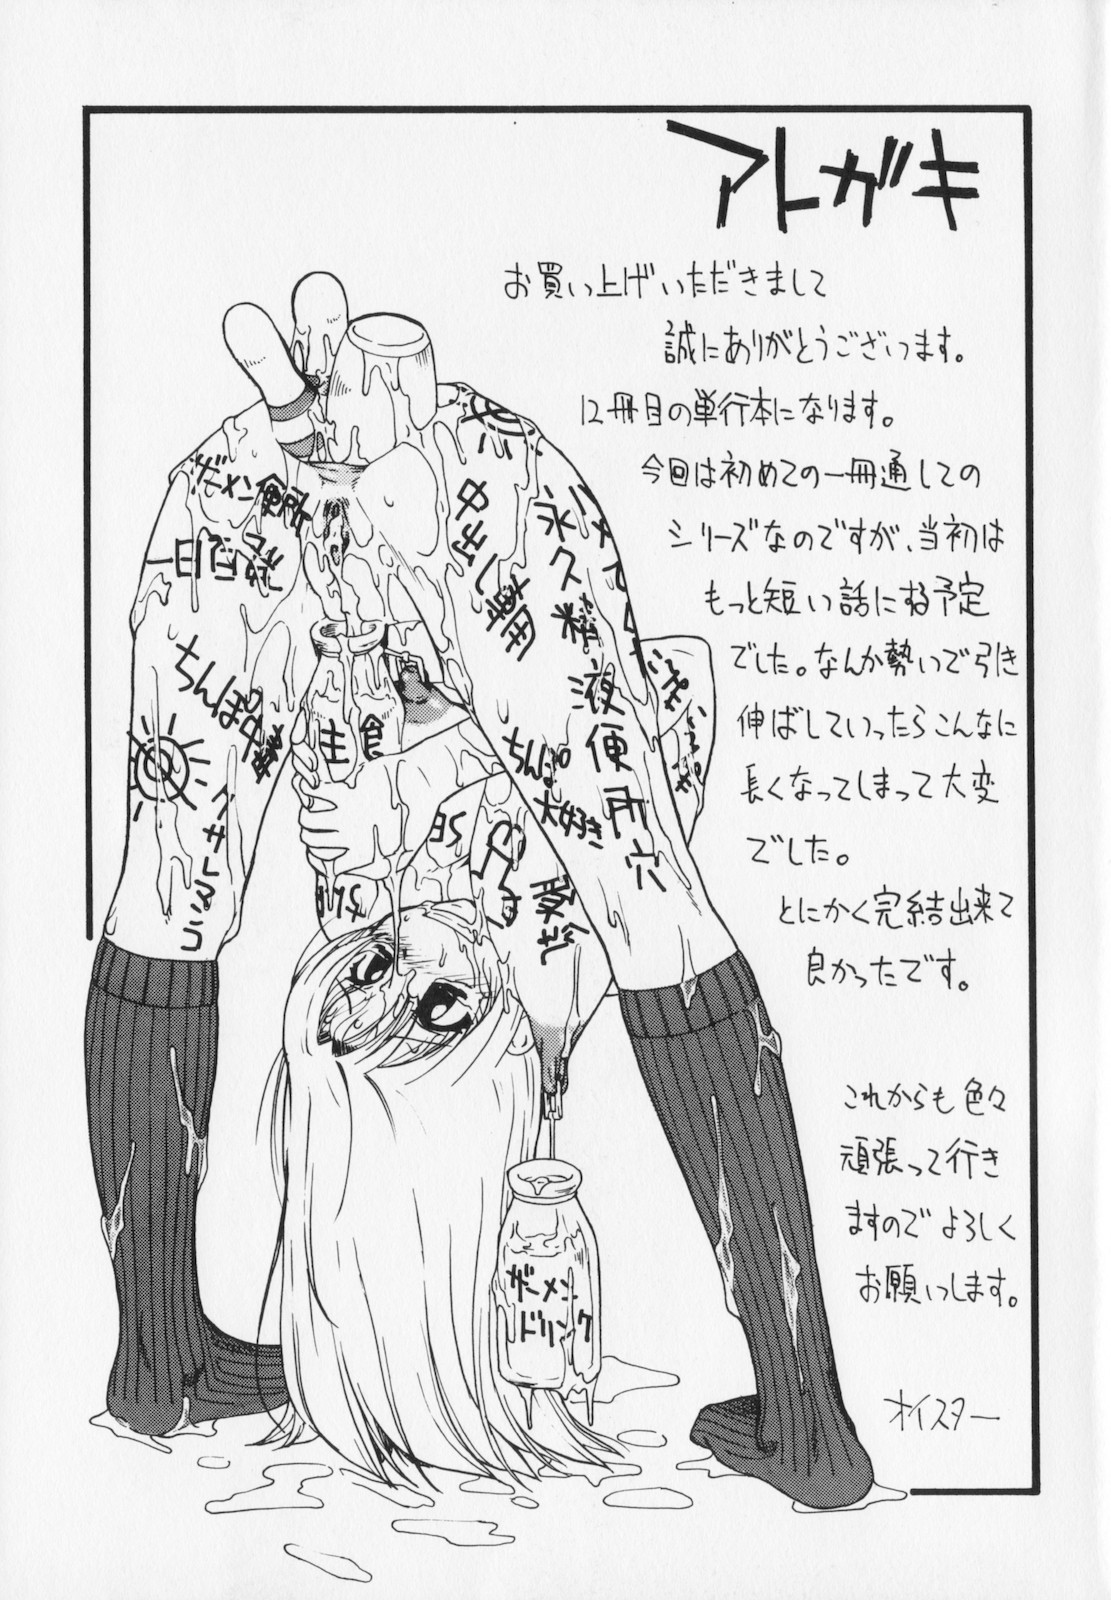 アトガキ
お買い上げいただきまして
誠にありがとうございます。
12冊目の単行本になります。
今回は初めての一冊通しての
シリーズなのですが、当初は
もっと短い話にする予定
でした。なんか勢いで引き
伸ばしていったらこんなに
長くなってしまって大変
でした。
とにかく完結出来て
良かったです。
これからも色々
頑張って行き
ますので よろしく
お願いします。
オイスター
ザーメン便所
中出し専用
永久精液便所穴
ちんぽ中毒
クサレマンコ
主食
ちんぽ
大好き
ザーメン
ドリンク